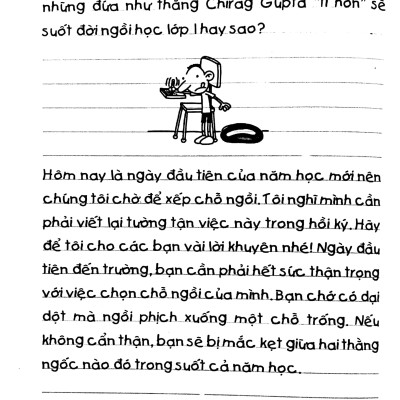 những đứa như thằng Chirag Gupta "tí hon" sẽ
suốt đời ngồi học lớp 1 hay sao?
Hôm nay là ngày đầu tiên của năm học mới nên
chúng tôi chờ để xếp chỗ ngồi. Tôi nghĩ mình cần
phải viết lại tường tận việc này trong hồi ký. Hãy
để tôi cho các bạn vài lời khuyên nhé! Ngày đầu
tiên đến trường, bạn cần phải hết sức thận trọng
với việc chọn chỗ ngồi của mình. Bạn chớ có dại
dột mà ngồi phịch xuống một chỗ trống. Nếu
không cẩn thận, bạn sẽ bị mắc kẹt giữa hai thằng
ngốc nào đó trong suốt cả năm học.